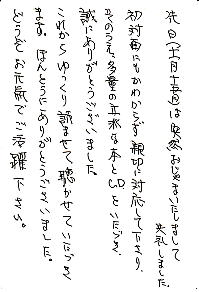 先日(十一月十五日)は突然おじゃまいたしまして
失礼しました。
初対面にもかかわらず、親切に対応して下さり、
そのうえ、多量の立派な本とCDをいただき、
誠にありがとうございました。
これからゆっくり読ませて、聴かせていただき
ます。ほんとうにありがとうございました。
どうぞお元気でご活躍下さい。